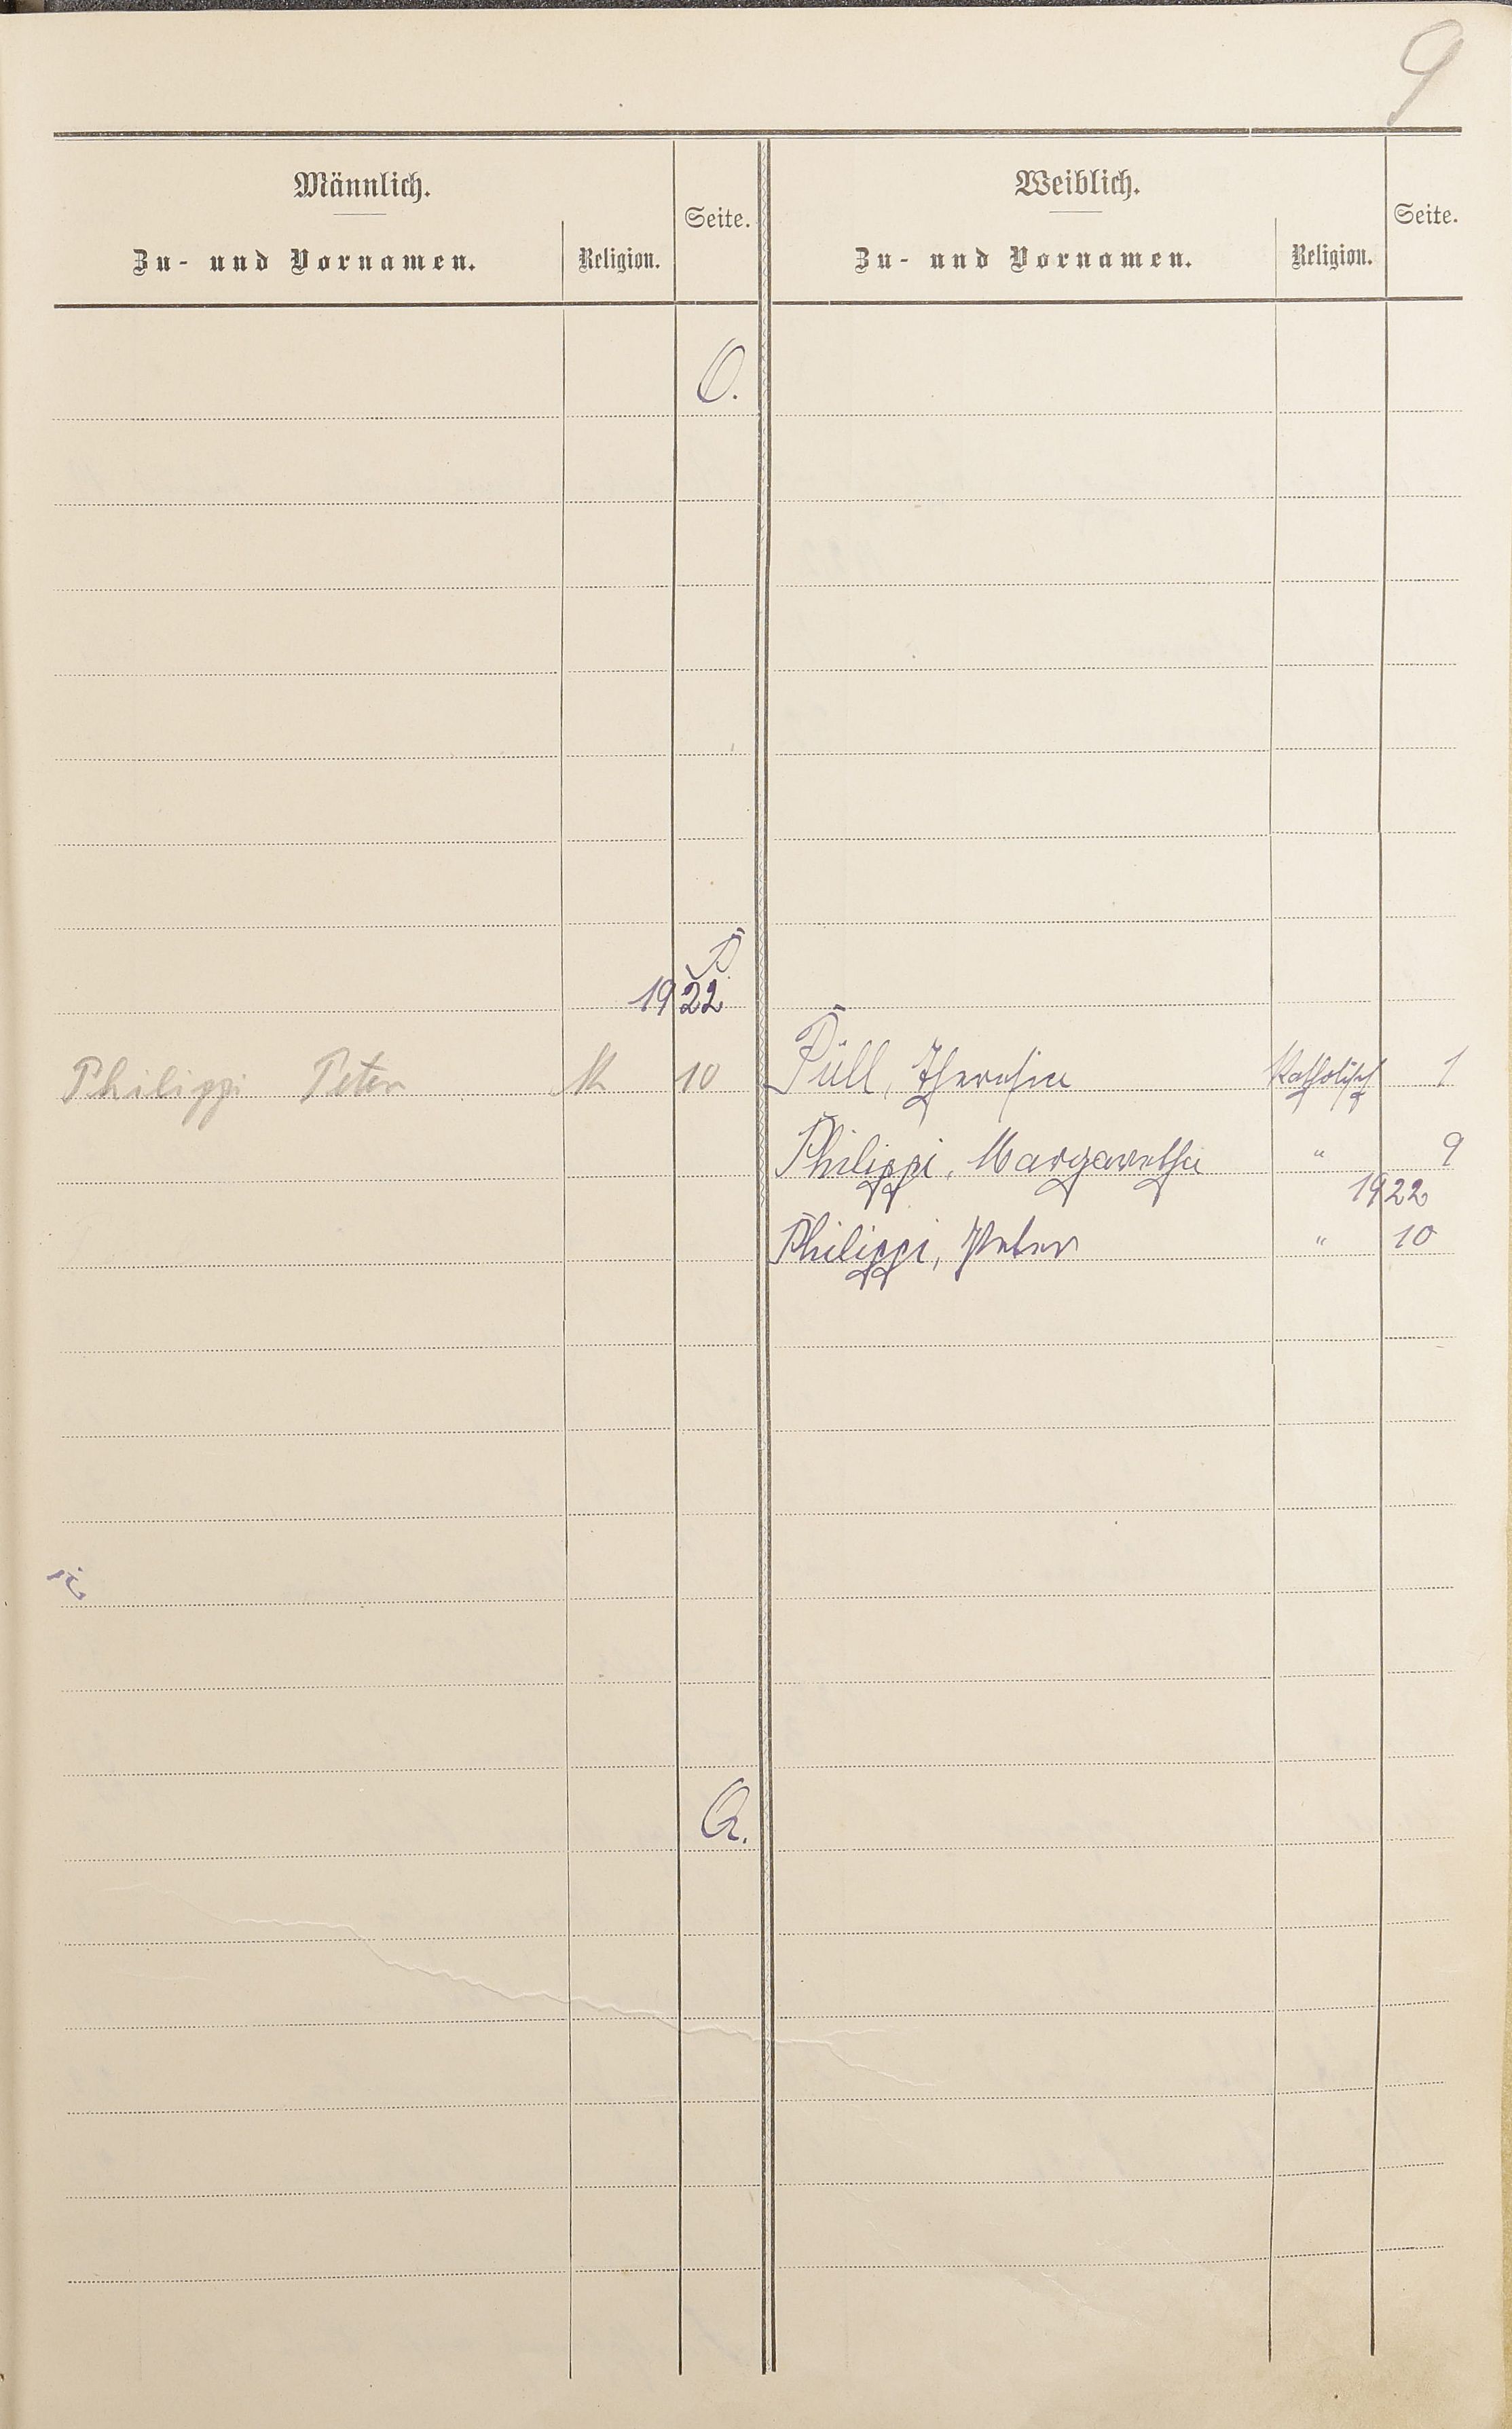 9
Männlich. Weiblich.
Seite. Seite.
Zu- und Vornamen. Religion. Zu- und Vornamen. Religion.
O.
P.
1922
Philippi Peter K 10 Püll, Theresia Katholisch 1
Philippi, Margaretha " 9
1922
Philippi, Peter " 10
Q.